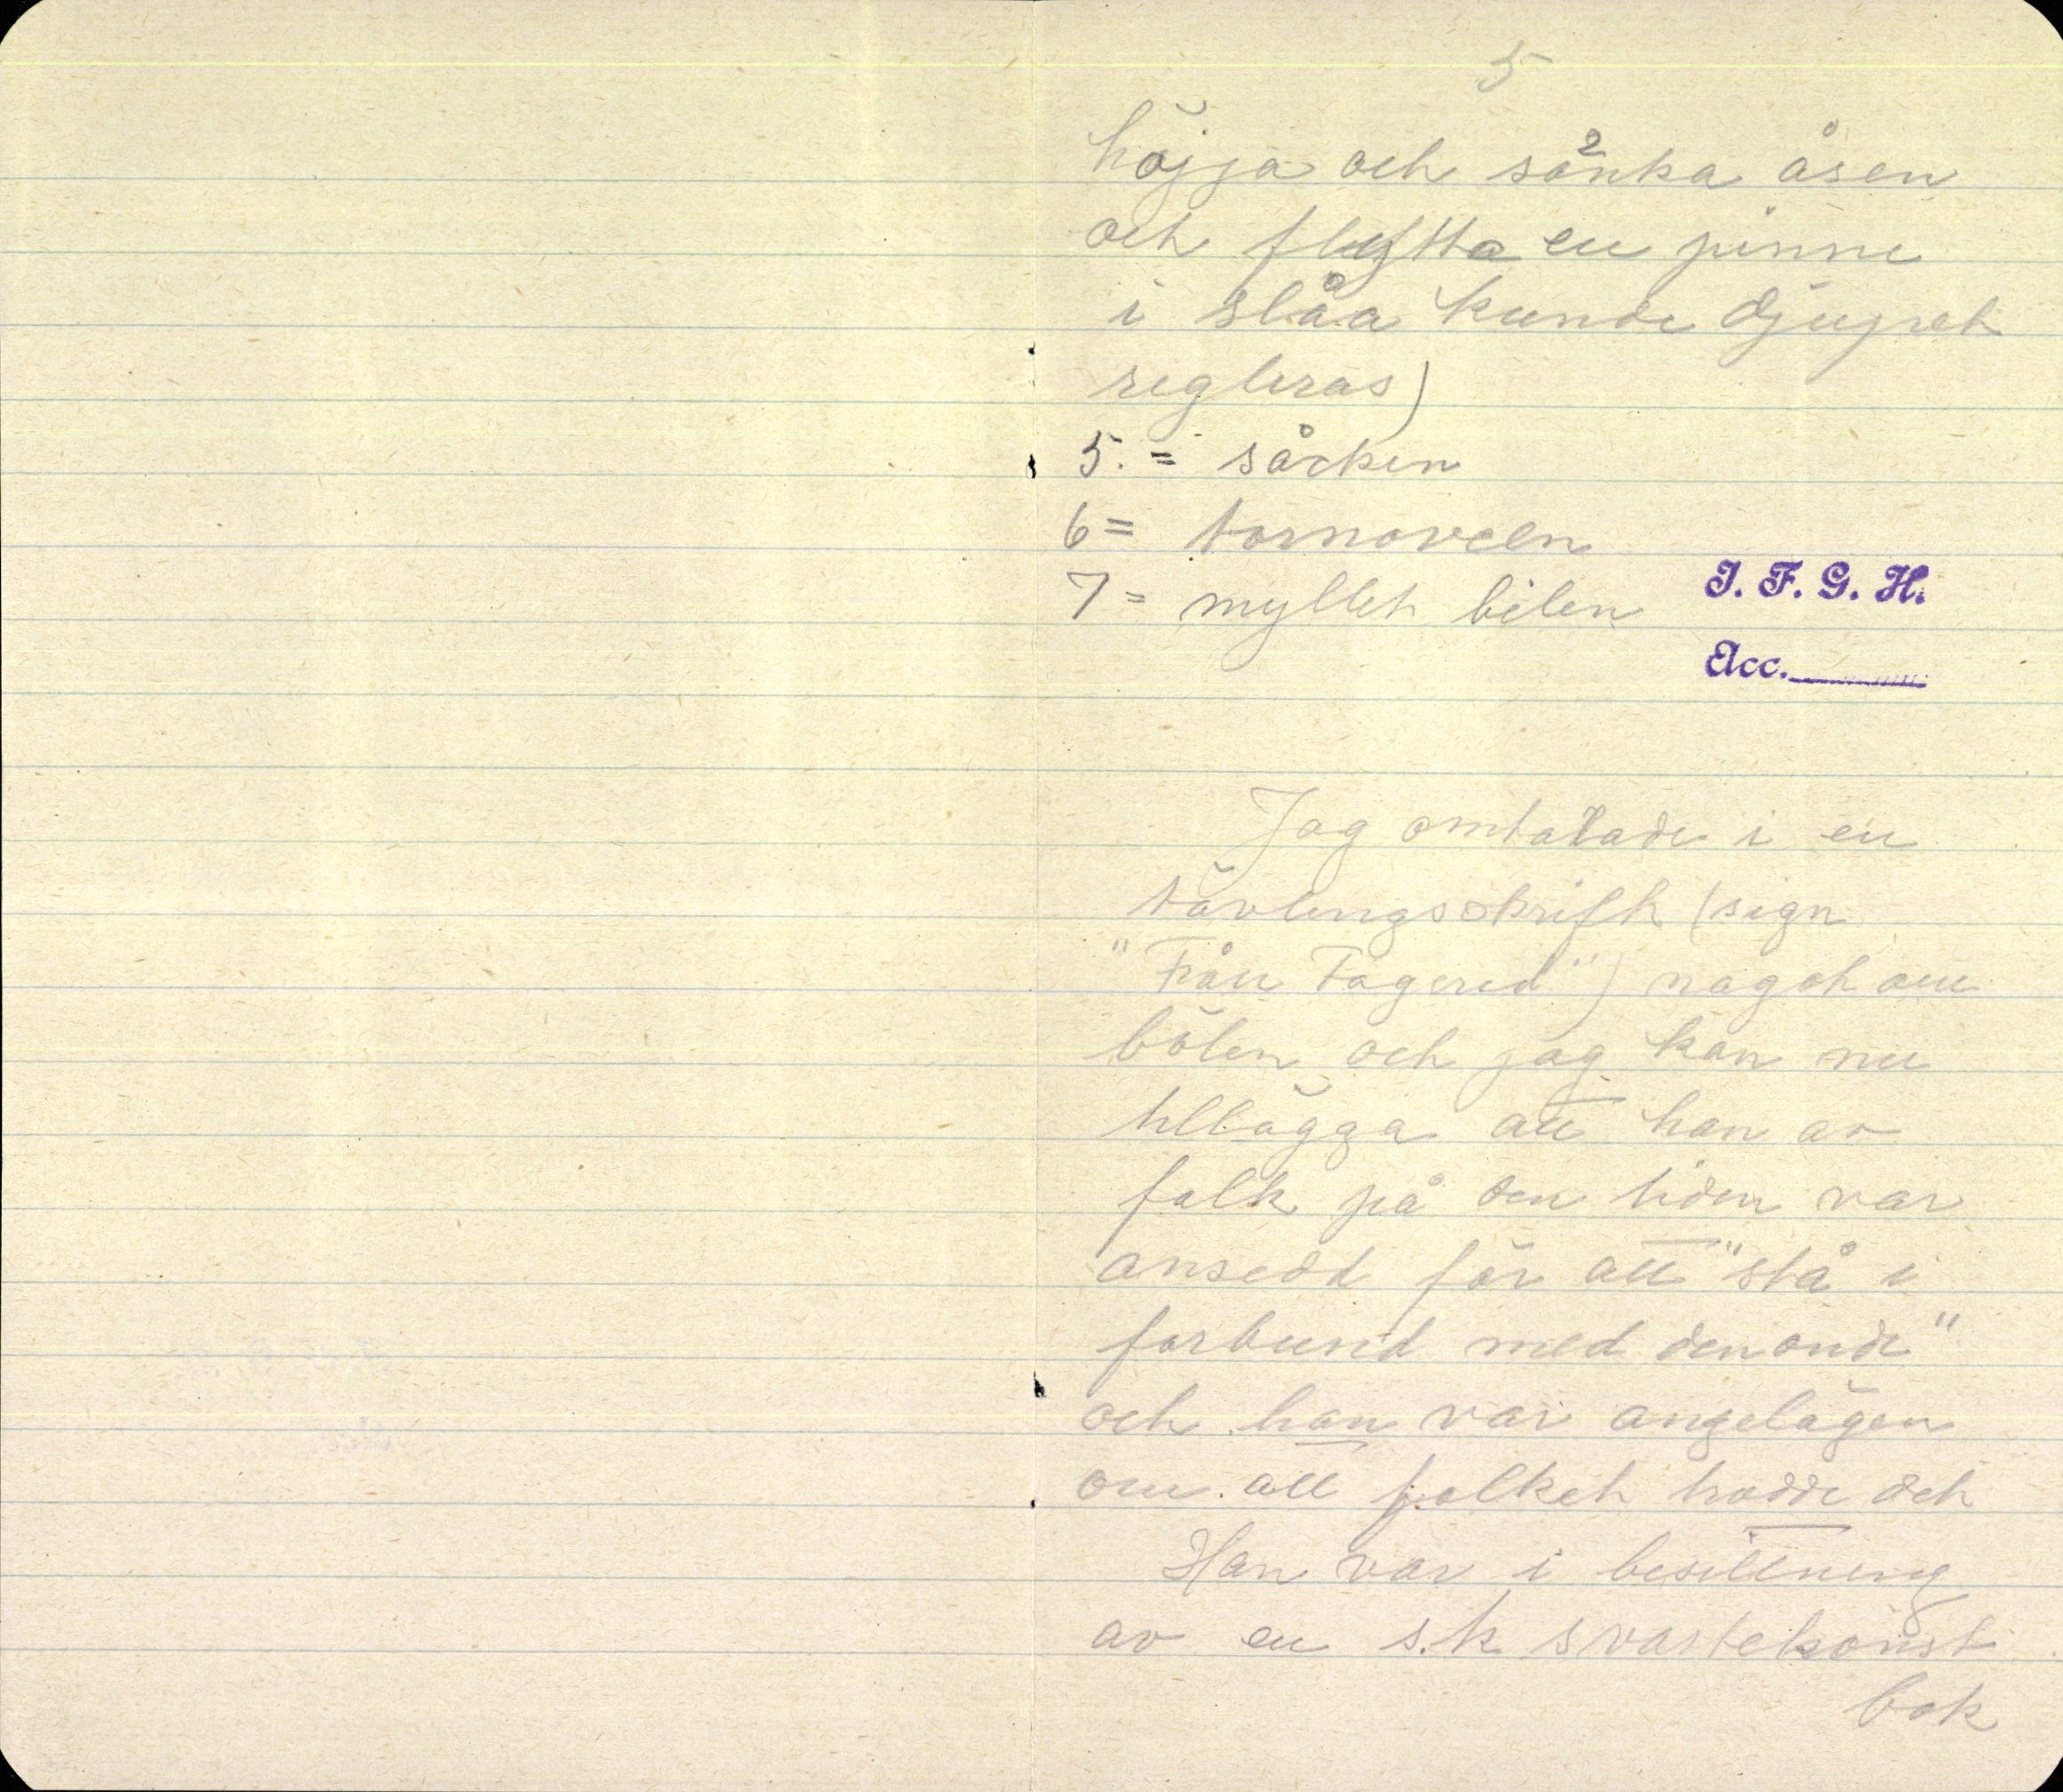 5
höjja och sänka åsen
och flytta en pinne
i slåa kunde djupet
regleras)
5. = såcken
6 = tornoveln
7 = myllet bilen
I. F. G. H.
Acc.
Jag omtalade i en
tävlingsskrift (sign
"Från Fagered") nagot om
bölen och jag kan nu
tillägga att han av
folk på den tiden var
ansedd för att "stå i
forbund med den onde"
och han var angelägen
om att folket trodde det
Han var i besittning
av en s.k svartekonst
bok